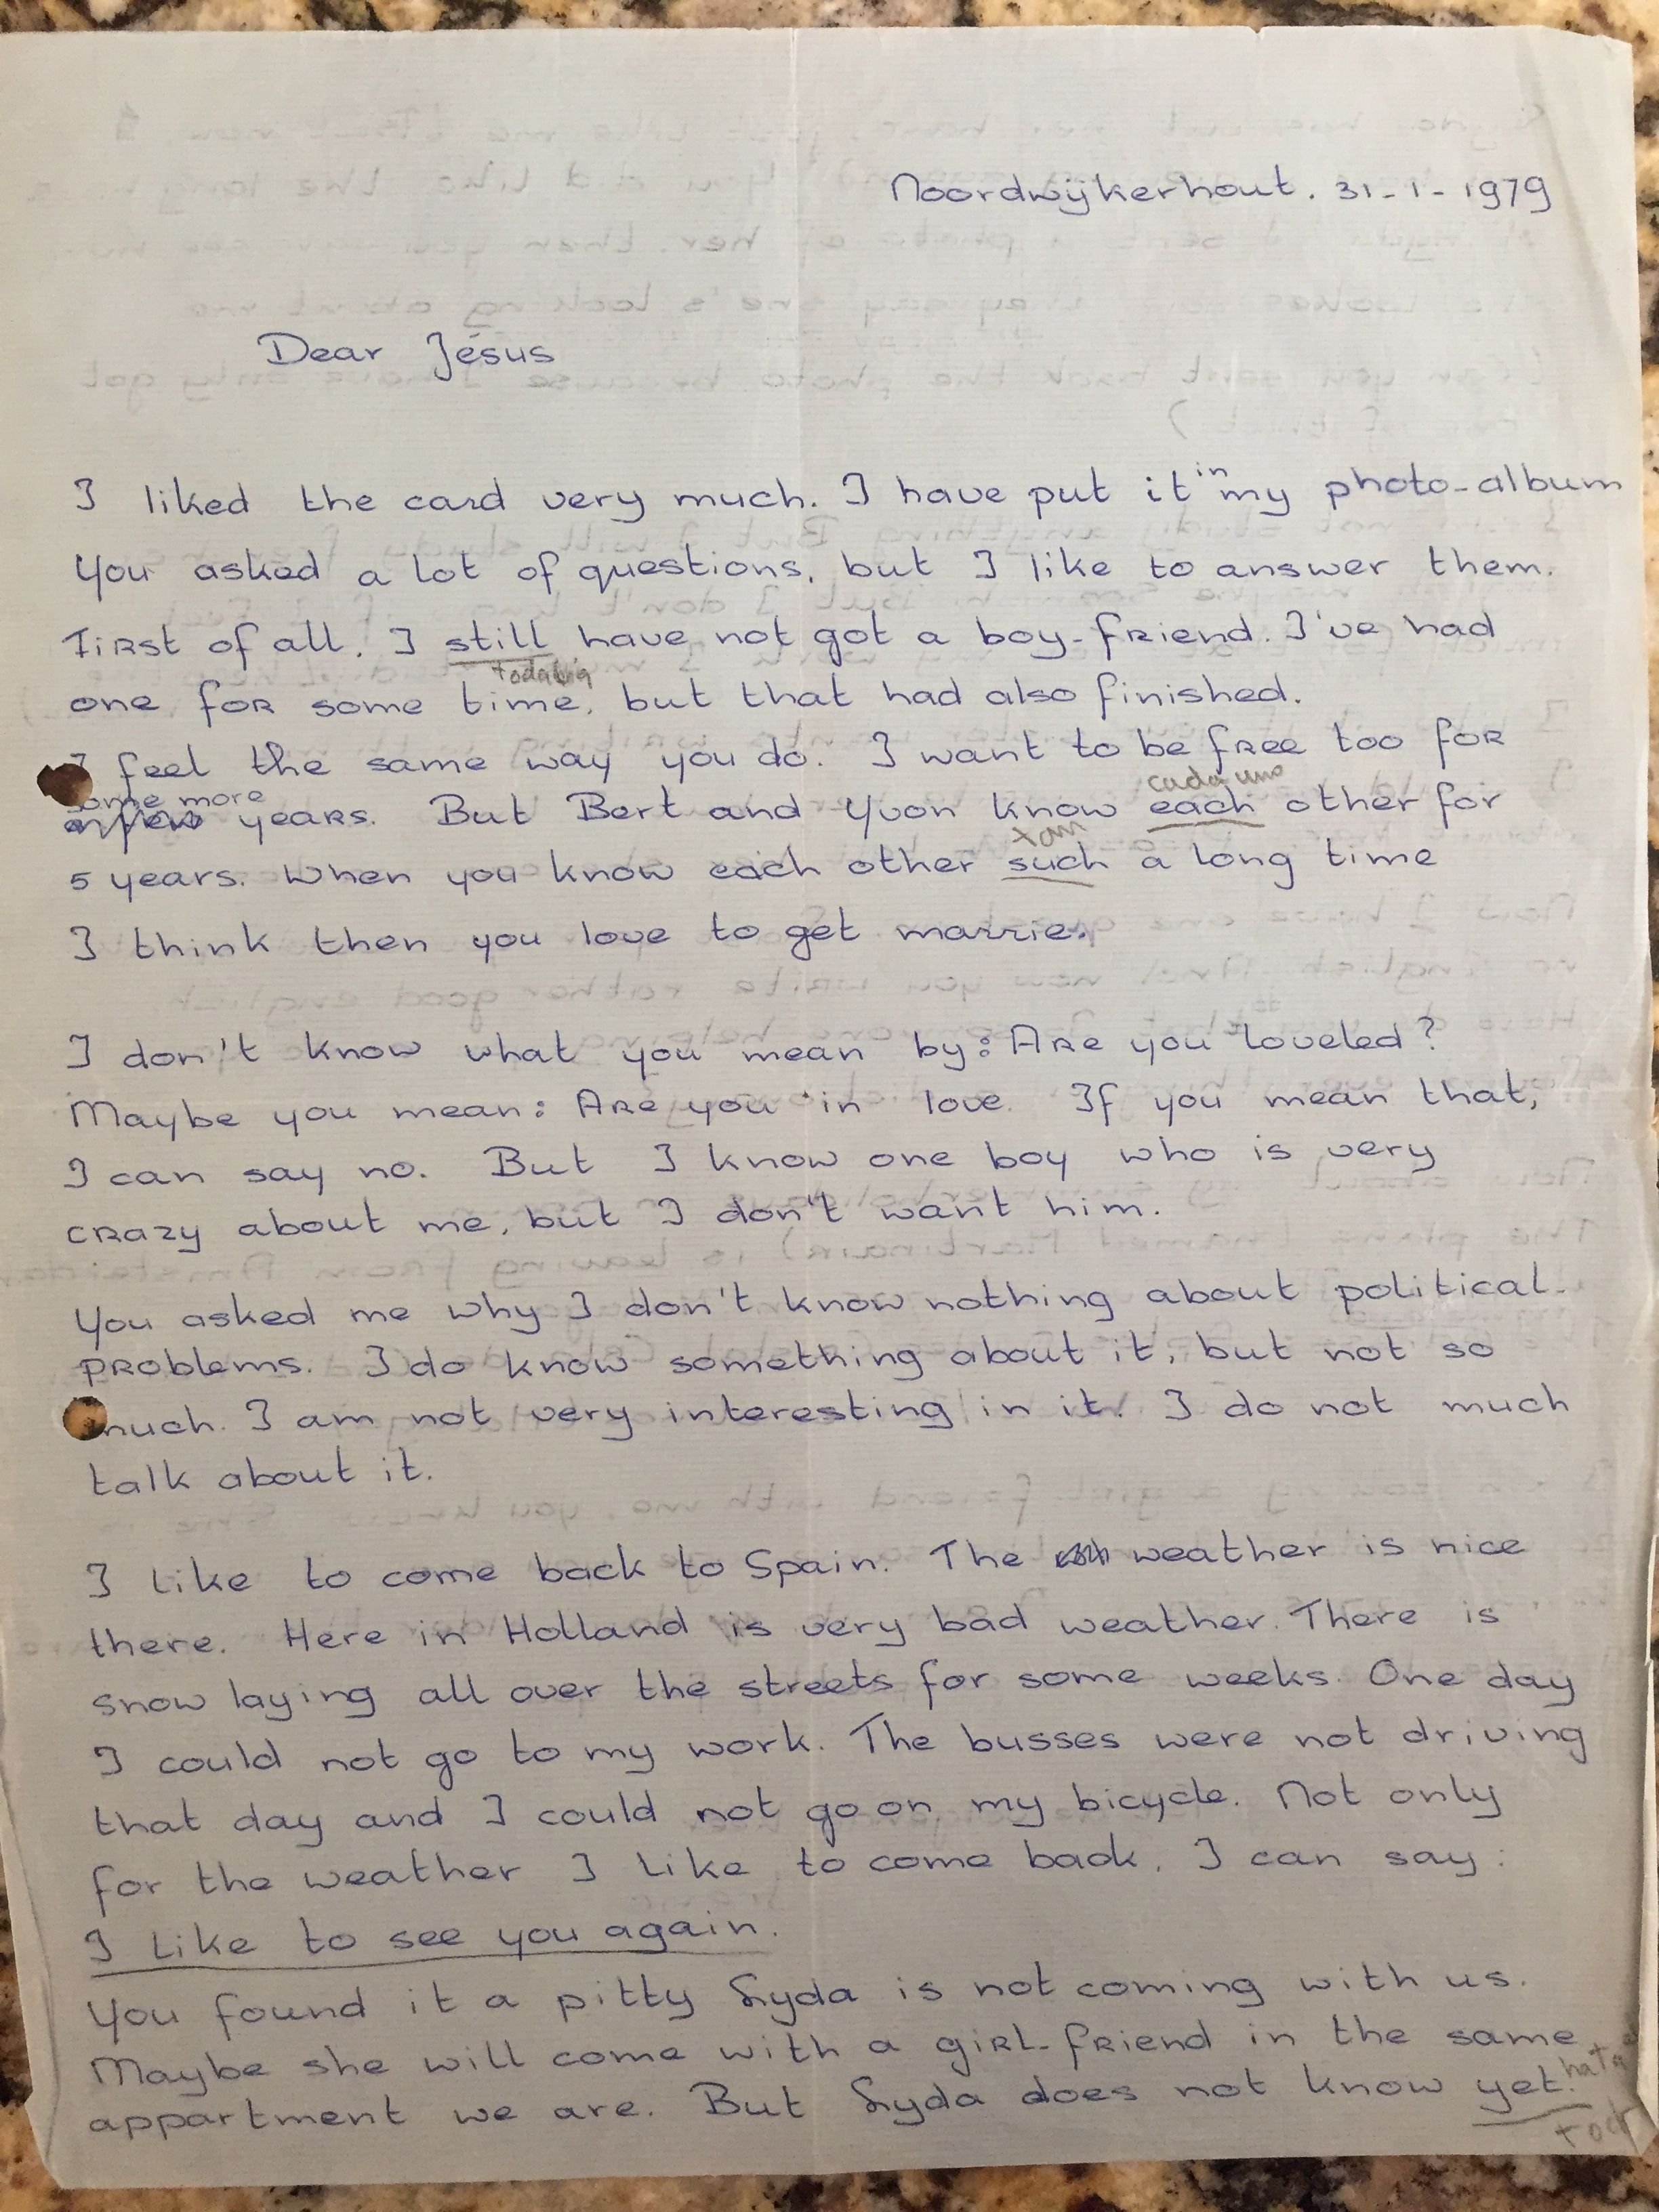 Noordwijkerhout. 31-1-1979
Dear Jésus
I liked the card very much. I have put it in my photo-album
You asked a lot of questions, but I like to answer them.
First of all, I still have not got a boy-friend. I've had
todabia
one for some time, but that had also finished.
I feel the same way you do. I want to be free too for
cada uno
some more
years. But Bert and Yvon know each other for
tan
5 years. When you know each other such a long time
I think then you love to get marrie.
I don't know what you mean by: Are you loveled?
Maybe you mean: Are you in love. If you mean that,
I can say no. But I know one boy who is very
crazy about me, but I don't want him.
You asked me why I don't know nothing about political-
problems. I do know something about it, but not so
much. I am not very interesting in it. I do not much
talk about it.
I like to come back to Spain. The weather is nice
there. Here in Holland is very bad weather. There is
snow laying all over the streets for some weeks. One day
I could not go to my work. The busses were not driving
that day and I could not go on my bicycle. Not only
for the weather I like to come back, I can say:
I like to see you again.
You found it a pitty Lyda is not coming with us.
Maybe she will come with a girl-friend in the same
appartment we are. But Lyda does not know yet.